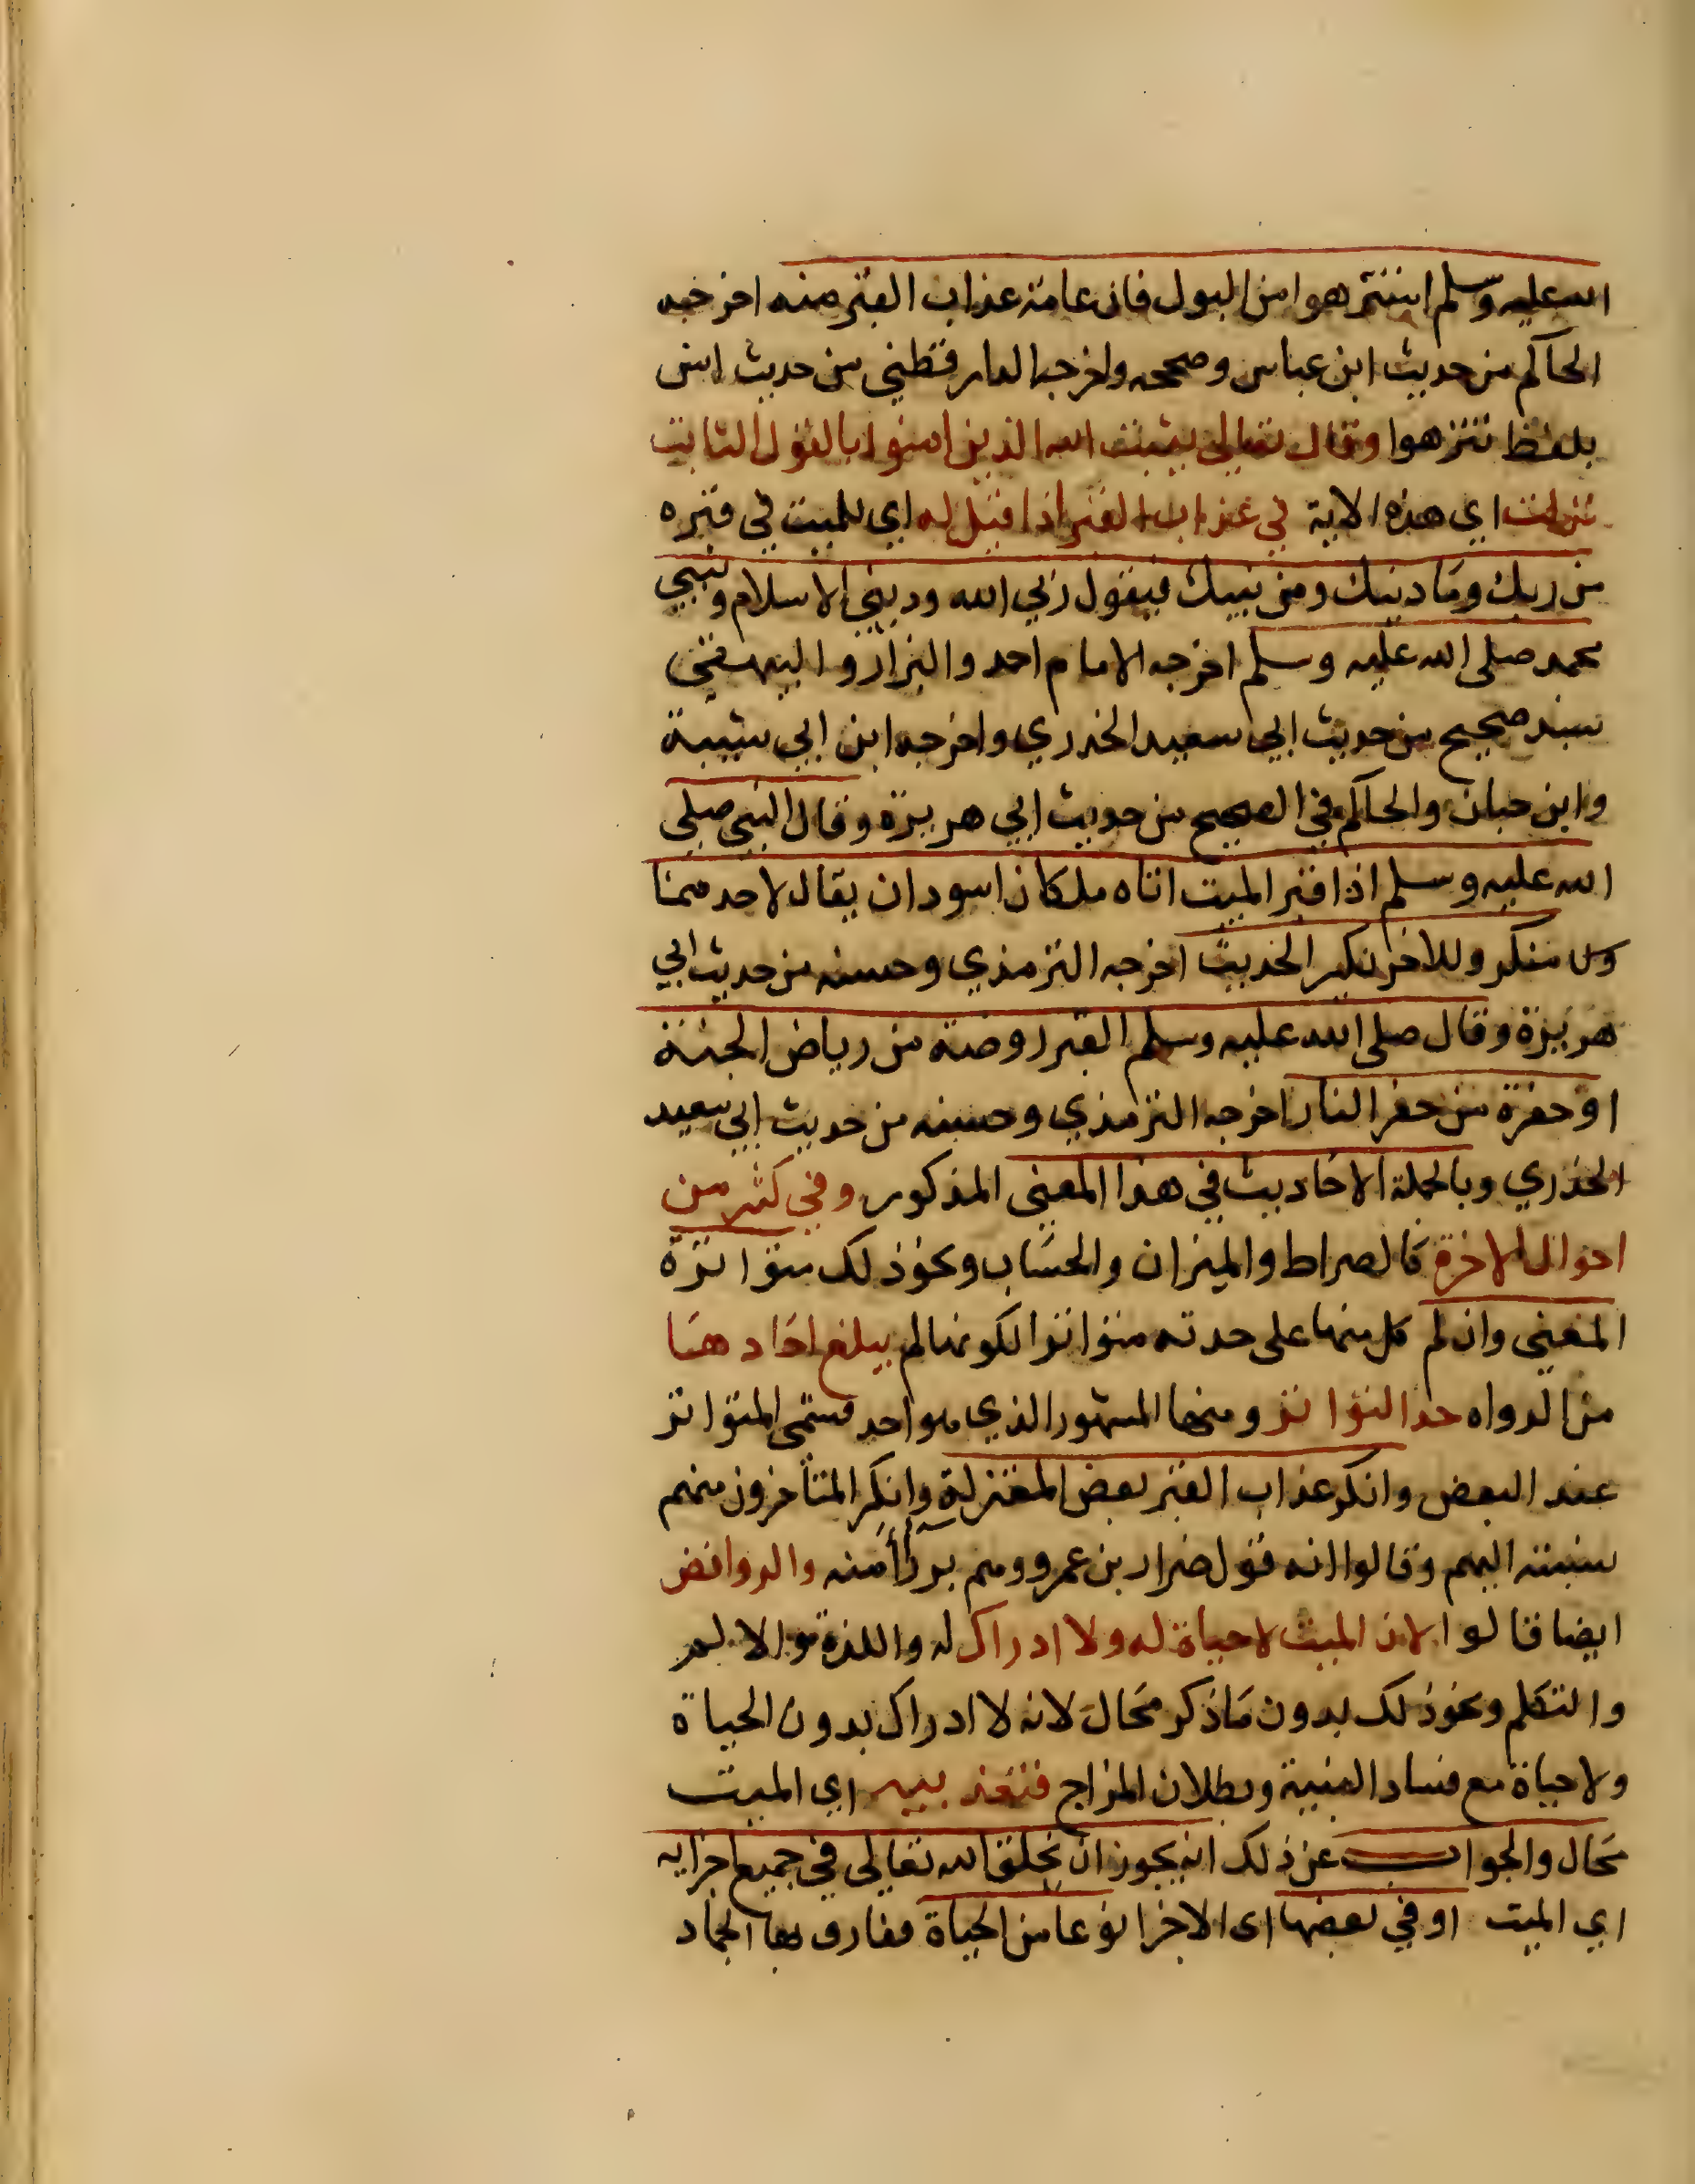 الله عليه وسلم استنزهوا من البول فان عامة عذاب القبر منه اخرجه
الحاكم من حديث ابن عباس وصححه واخرجه الدارقطني من حديث انس
بلفظ تنزهوا وقال تعالى يثبت الله الذين امنوا بالقول الثابت
نزلت اي هذه الاية في عذاب القبر اذا قيل له اي للميت في قبره
من ربك وما دينك ومن نبيك فيقول ربي الله وديني الاسلام ونبيي
محمد صلى الله عليه وسلم اخرجه الامام احمد والبزار والبيهقي
بسند صحيح من حديث ابي سعيد الخدري واخرجه ابن ابي شيبة
وابن حبان والحاكم في الصحيح من حديث ابي هريرة وقال النبي صلى
الله عليه وسلم اذا قبر الميت اتاه ملكان اسودان يقال لاحدهما
منكر وللاخر نكير الحديث اخرجه الترمذي وحسنه من حديث ابي
هريرة وقال صلى الله عليه وسلم القبر روضة من رياض الجنة
او حفرة من حفر النار اخرجه الترمذي وحسنه من حديث ابي سعيد
الخدري وبالجملة الاحاديث في هذا المعنى المذكور وفي كثير من
احوال الاخرة كالصراط والميزان والحساب ونحو ذلك متواترة
المعنى وان لم كل منها على حدته متواترا لكونها لم يبلغ احادها
من الرواه حد التواتر ومنها المشهور الذي هو احد قسمى المتواتر
عند البعض وانكر عذاب القبر بعض المعتزلة وانكر المتأخرون منهم
نسبته اليهم وقالوا انه قول ضرار بن عمرو وهم برأا منه والروافض
ايضا قالوا لان الميت لا حياة له ولا ادراك له واللذة والالم
والتكلم ونحو ذلك بدون ما ذكر محال لانه لا ادراك بدون الحياة
ولا حياة مع فساد البنية وبطلان المزاج فتعذيبه اي الميت
محال والجواب عن ذلك انه يجوز ان يخلق الله تعالى في جميع اجزايه
اي الميت او في بعضها اى الاجزا نوعا من الحياة مفارق بها الجماد